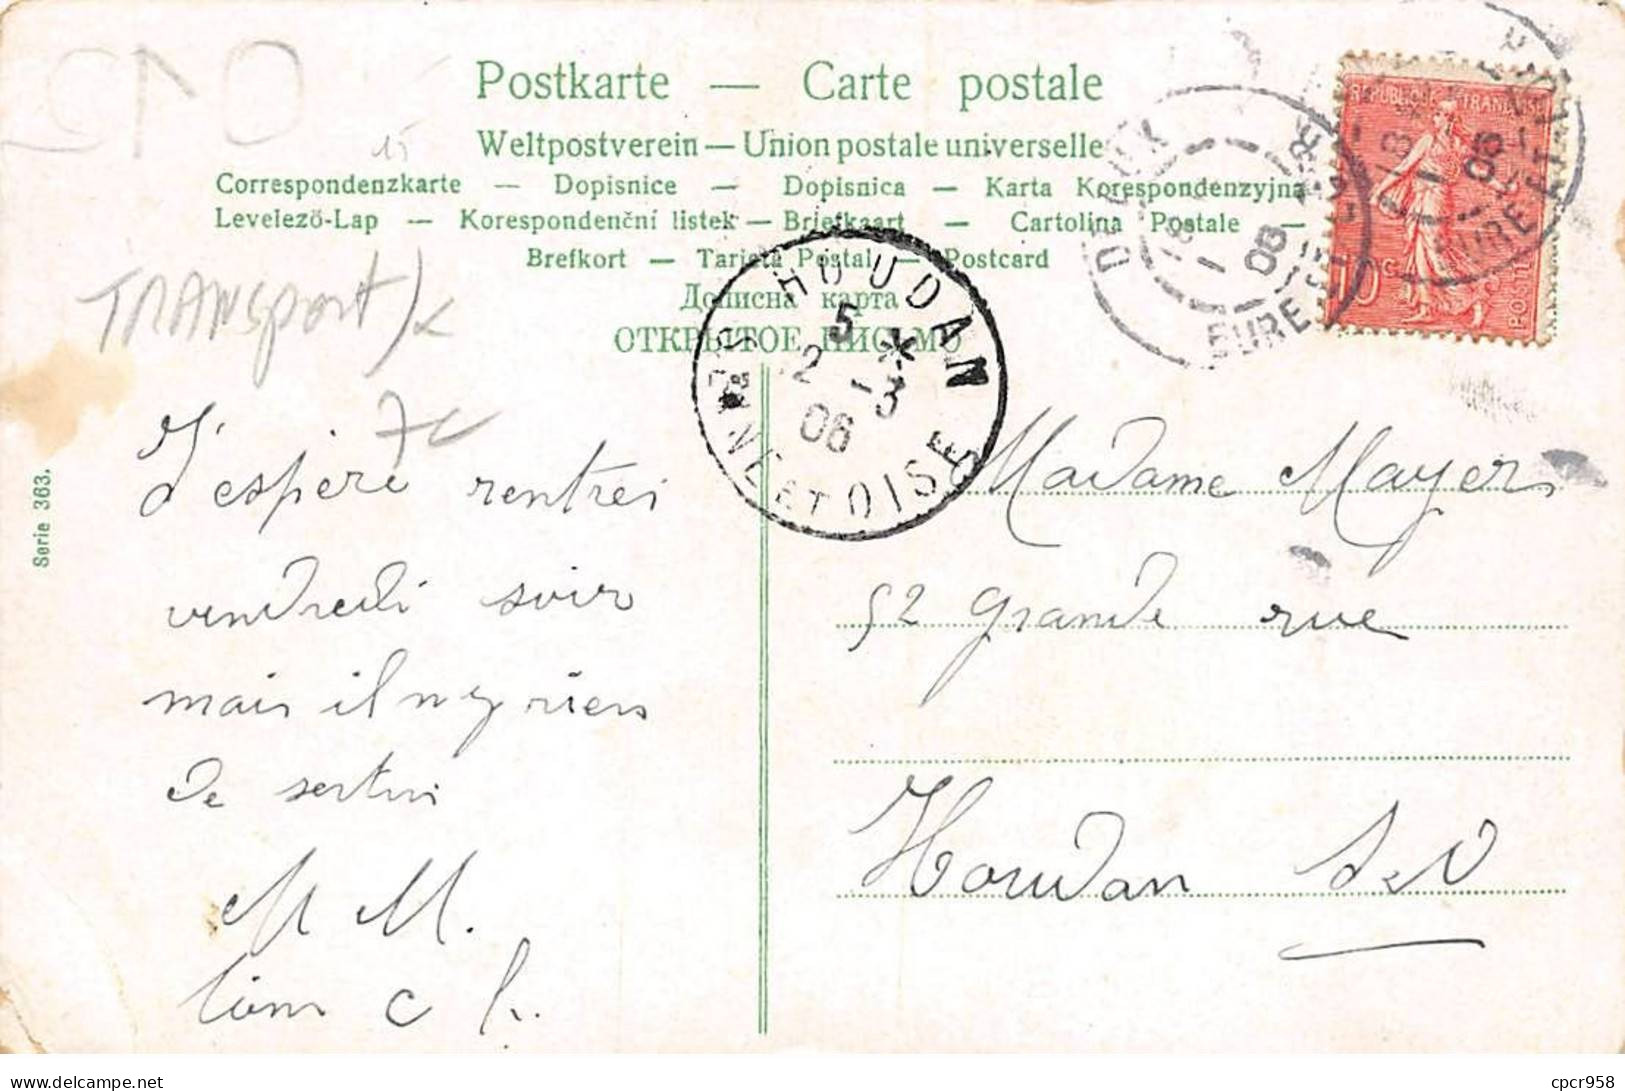 Postkarte — Carte postale
Weltpostverein — Union postale universelle
Correspondenzkarte — Dopisnice — Dopisnica — Karta Korespondenzyjna
Levelező-Lap — Korespondenční listek — Briefkaart — Cartolina Postale —
Brefkort — Tarjeta Postal — Postcard
Дописна карта
ОТКРЫТОЕ ПИСЬМО
REPUBLIQUE FRANÇAISE
10c
POSTES
EURE
EURE
HOUDAN
5 *
2 -3
06
SEINE ET OISE
TRANSport
Serie 363.
J'espère rentrer
vendredi soir
mais il n y rien
de
M M.
Madame Mayer
52 grande rue
Houdan S et O
cpcr958